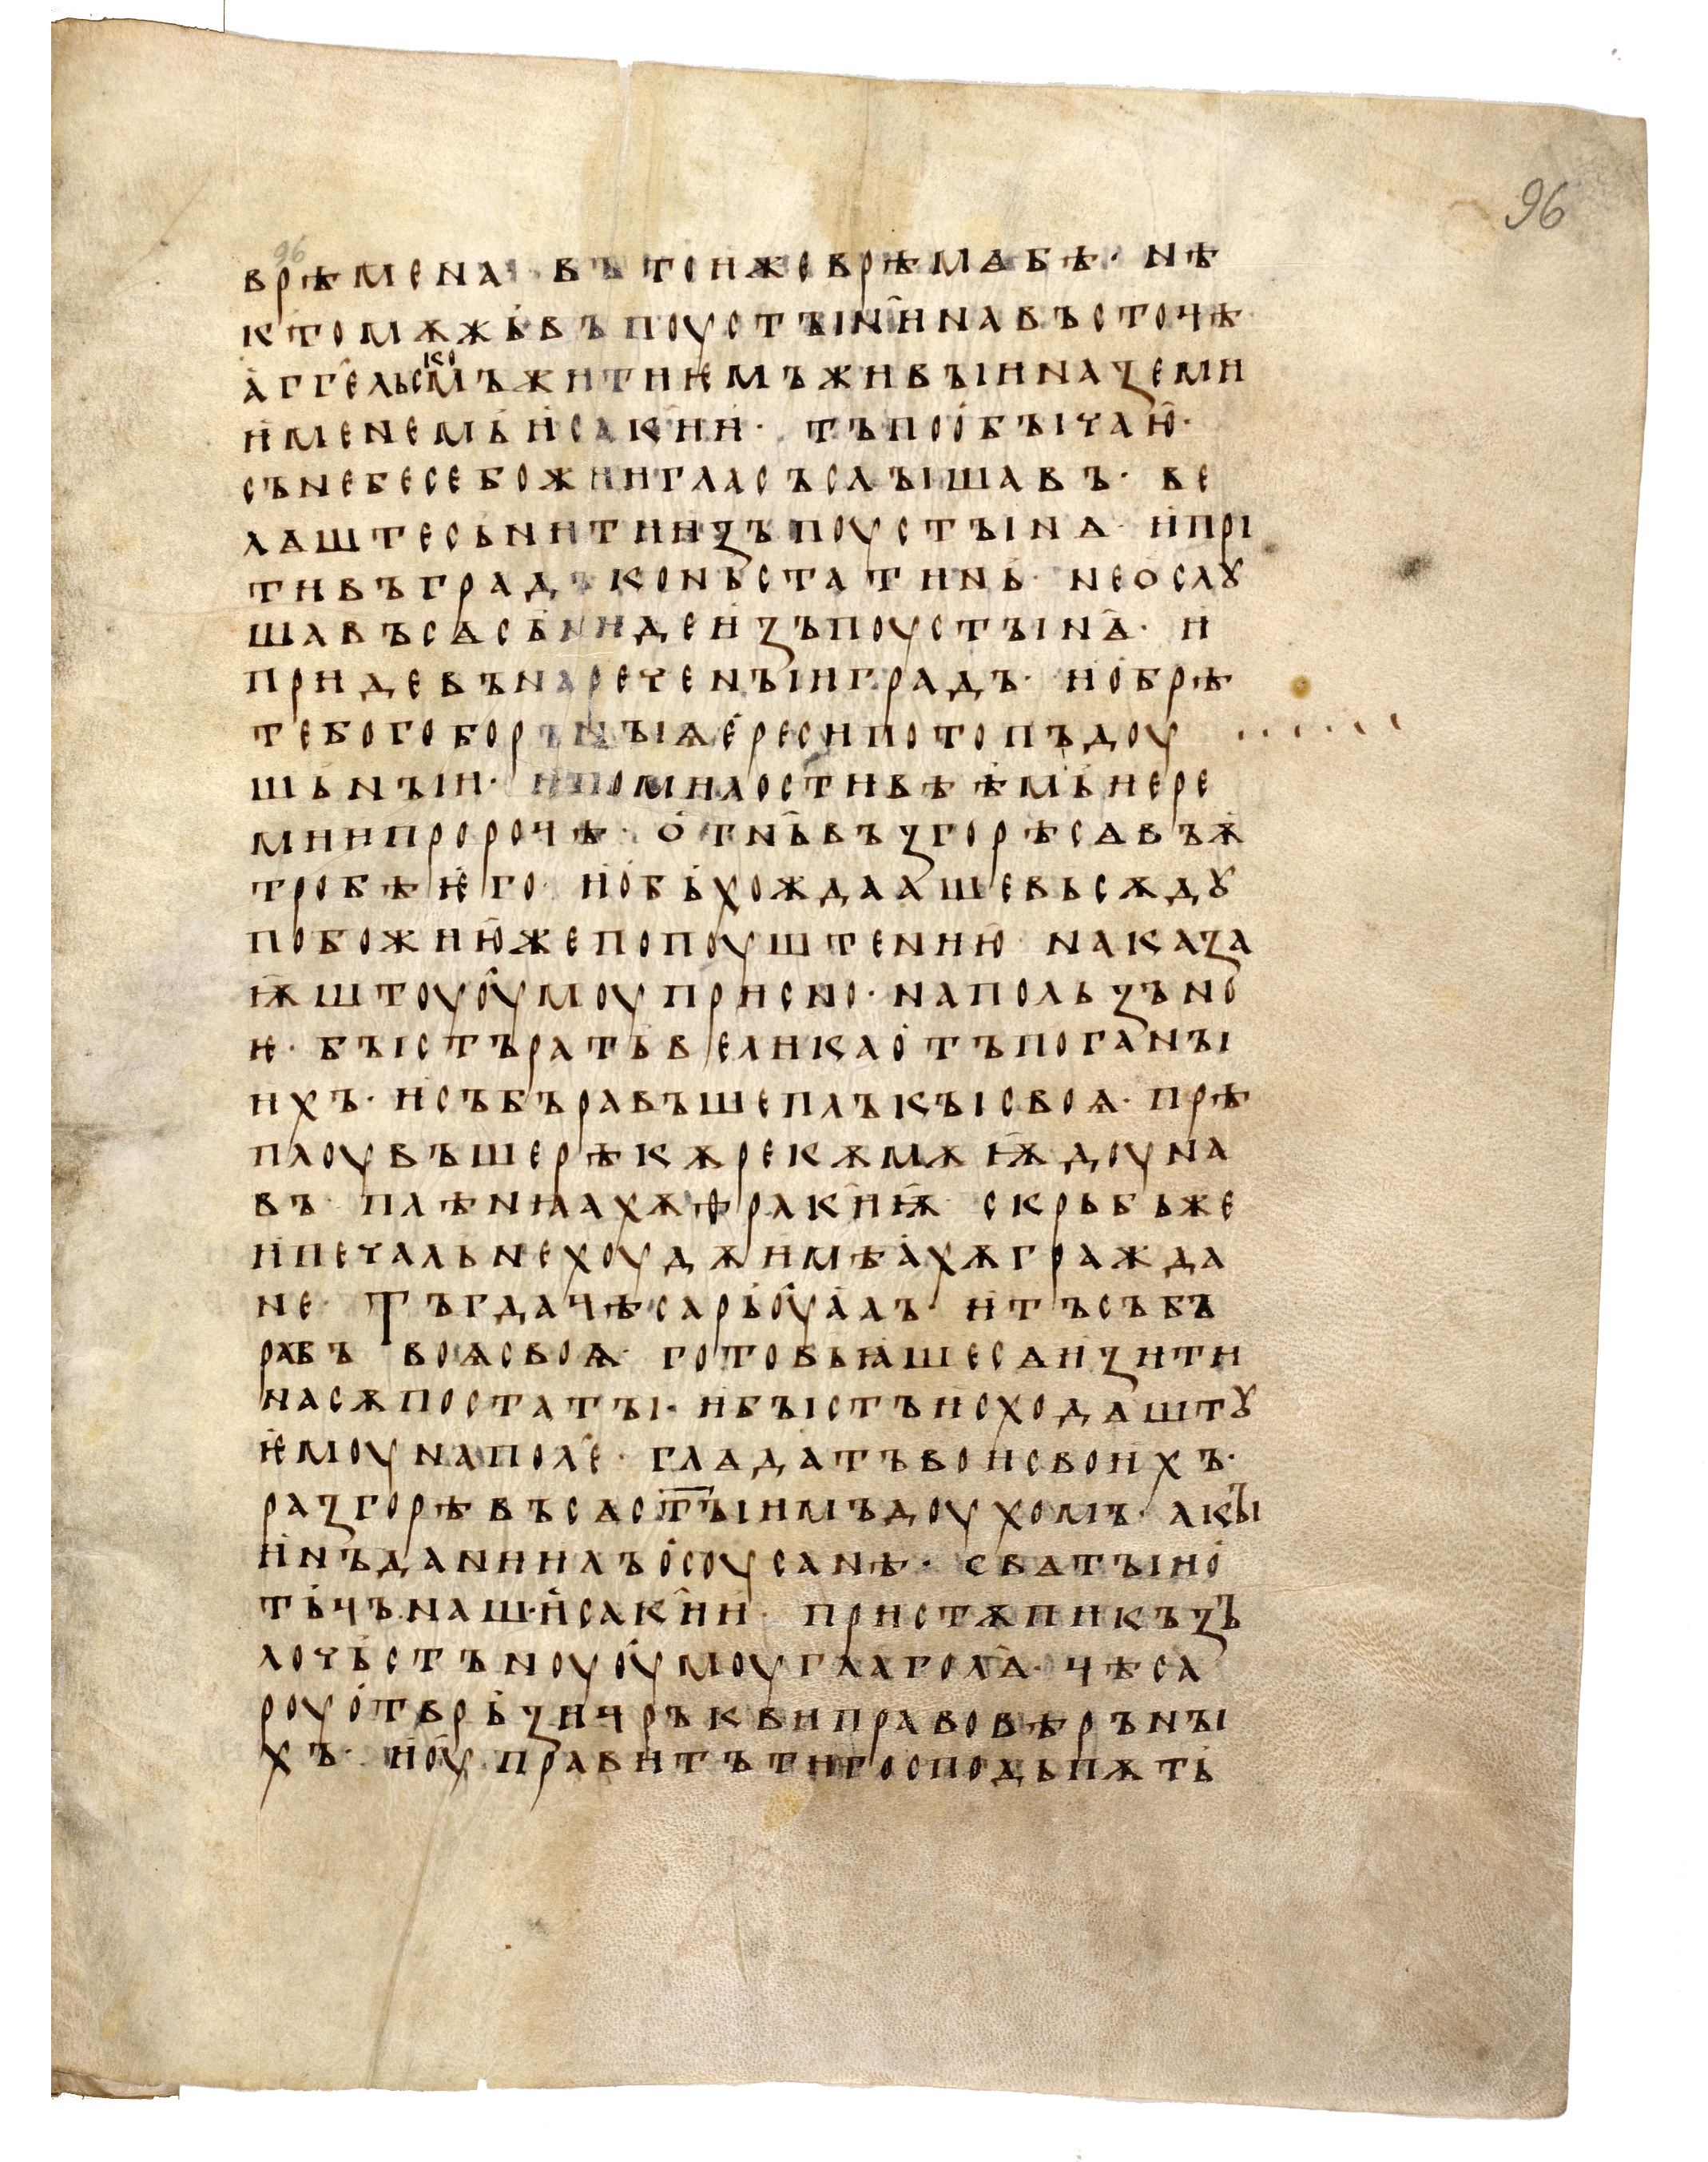 96
96
врѣмена· въ то н҅же врѣмѧ бѣ· нѣ
кто мѫжь въ поустꙑни на въсточѣ
а҅гг҄ельскомъ житиѥмъ живꙑи на земи
и҅менемь и҅саки҄и· тъ по о҅бꙑчаю҅·
съ небесе божии гласъ слꙑшавъ· ве
лѧште сънити из поустꙑнѧ· и҅ прі
ти въ градъ коньстатинь· не ослꙋ
шавъ сѧ сьниде и҅зъ поустꙑнѧ҄· и҅
приде въ нареченꙑи градъ· и о҅брѣ
те богоборьнꙑѩ е҅реси потопъ доу
шьнꙑи· и҅ помилости вѣѣмь иере
мии пророчѣ· о҅гн҄ь възгорѣ сѧ въ ѫ҅
тробѣ ѥ҅го· и҅ о҅бьхождаа҅ше вьсѫдꙋ
по божию҅ же попоуштению҅ наказа
ѭ҅штоуо҅умоу присно· на пользъно
ѥ· бꙑстъ ратъ велика о҅тъ поганꙑ
ихъ· и҅ събъравъше плъкꙑ своѧ· прѣ
плоувъше рѣкѫ рекѫмѫѭ҅ доуна
въ· плѣнꙗахѫ ѳраки҄ѭ҅ скрьбь же
и҅ печаль не хоудѫ имѣа҅хѫ гражда
не· Тъгда чѣсарь о҅уа҅лъ· и҅ тъ събь
равъ воѧ своѧ· готовьꙗ҅ше сѧ и҅зити
на сѫпостатꙑ· и҅ бꙑстъ и҅сходѧштꙋ
ѥ҅моу на пол҄е· глѧдатъ вои свои҅хъ·
разгорѣвъ сѧ ст҃ꙑимъ доухомъ· акꙑ
и҅нъ даниилъ о҅ соусанѣ· свѧтꙑи о҅
тьчъ наш· и҅саки҄и· пристѫпи къ зъ
лочьстъноуо҅умоу глагол҄ѧ· чѣса
роу о҅тврьзи чръкви правовѣрънꙑ
хъ· и҅ о҅управитъ ти господь пѫть